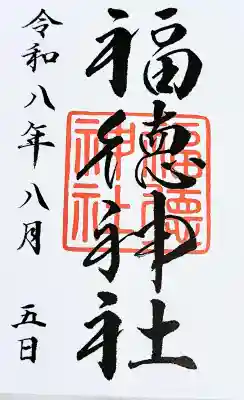 福徳神社
福徳神社
令和八年八月
五日